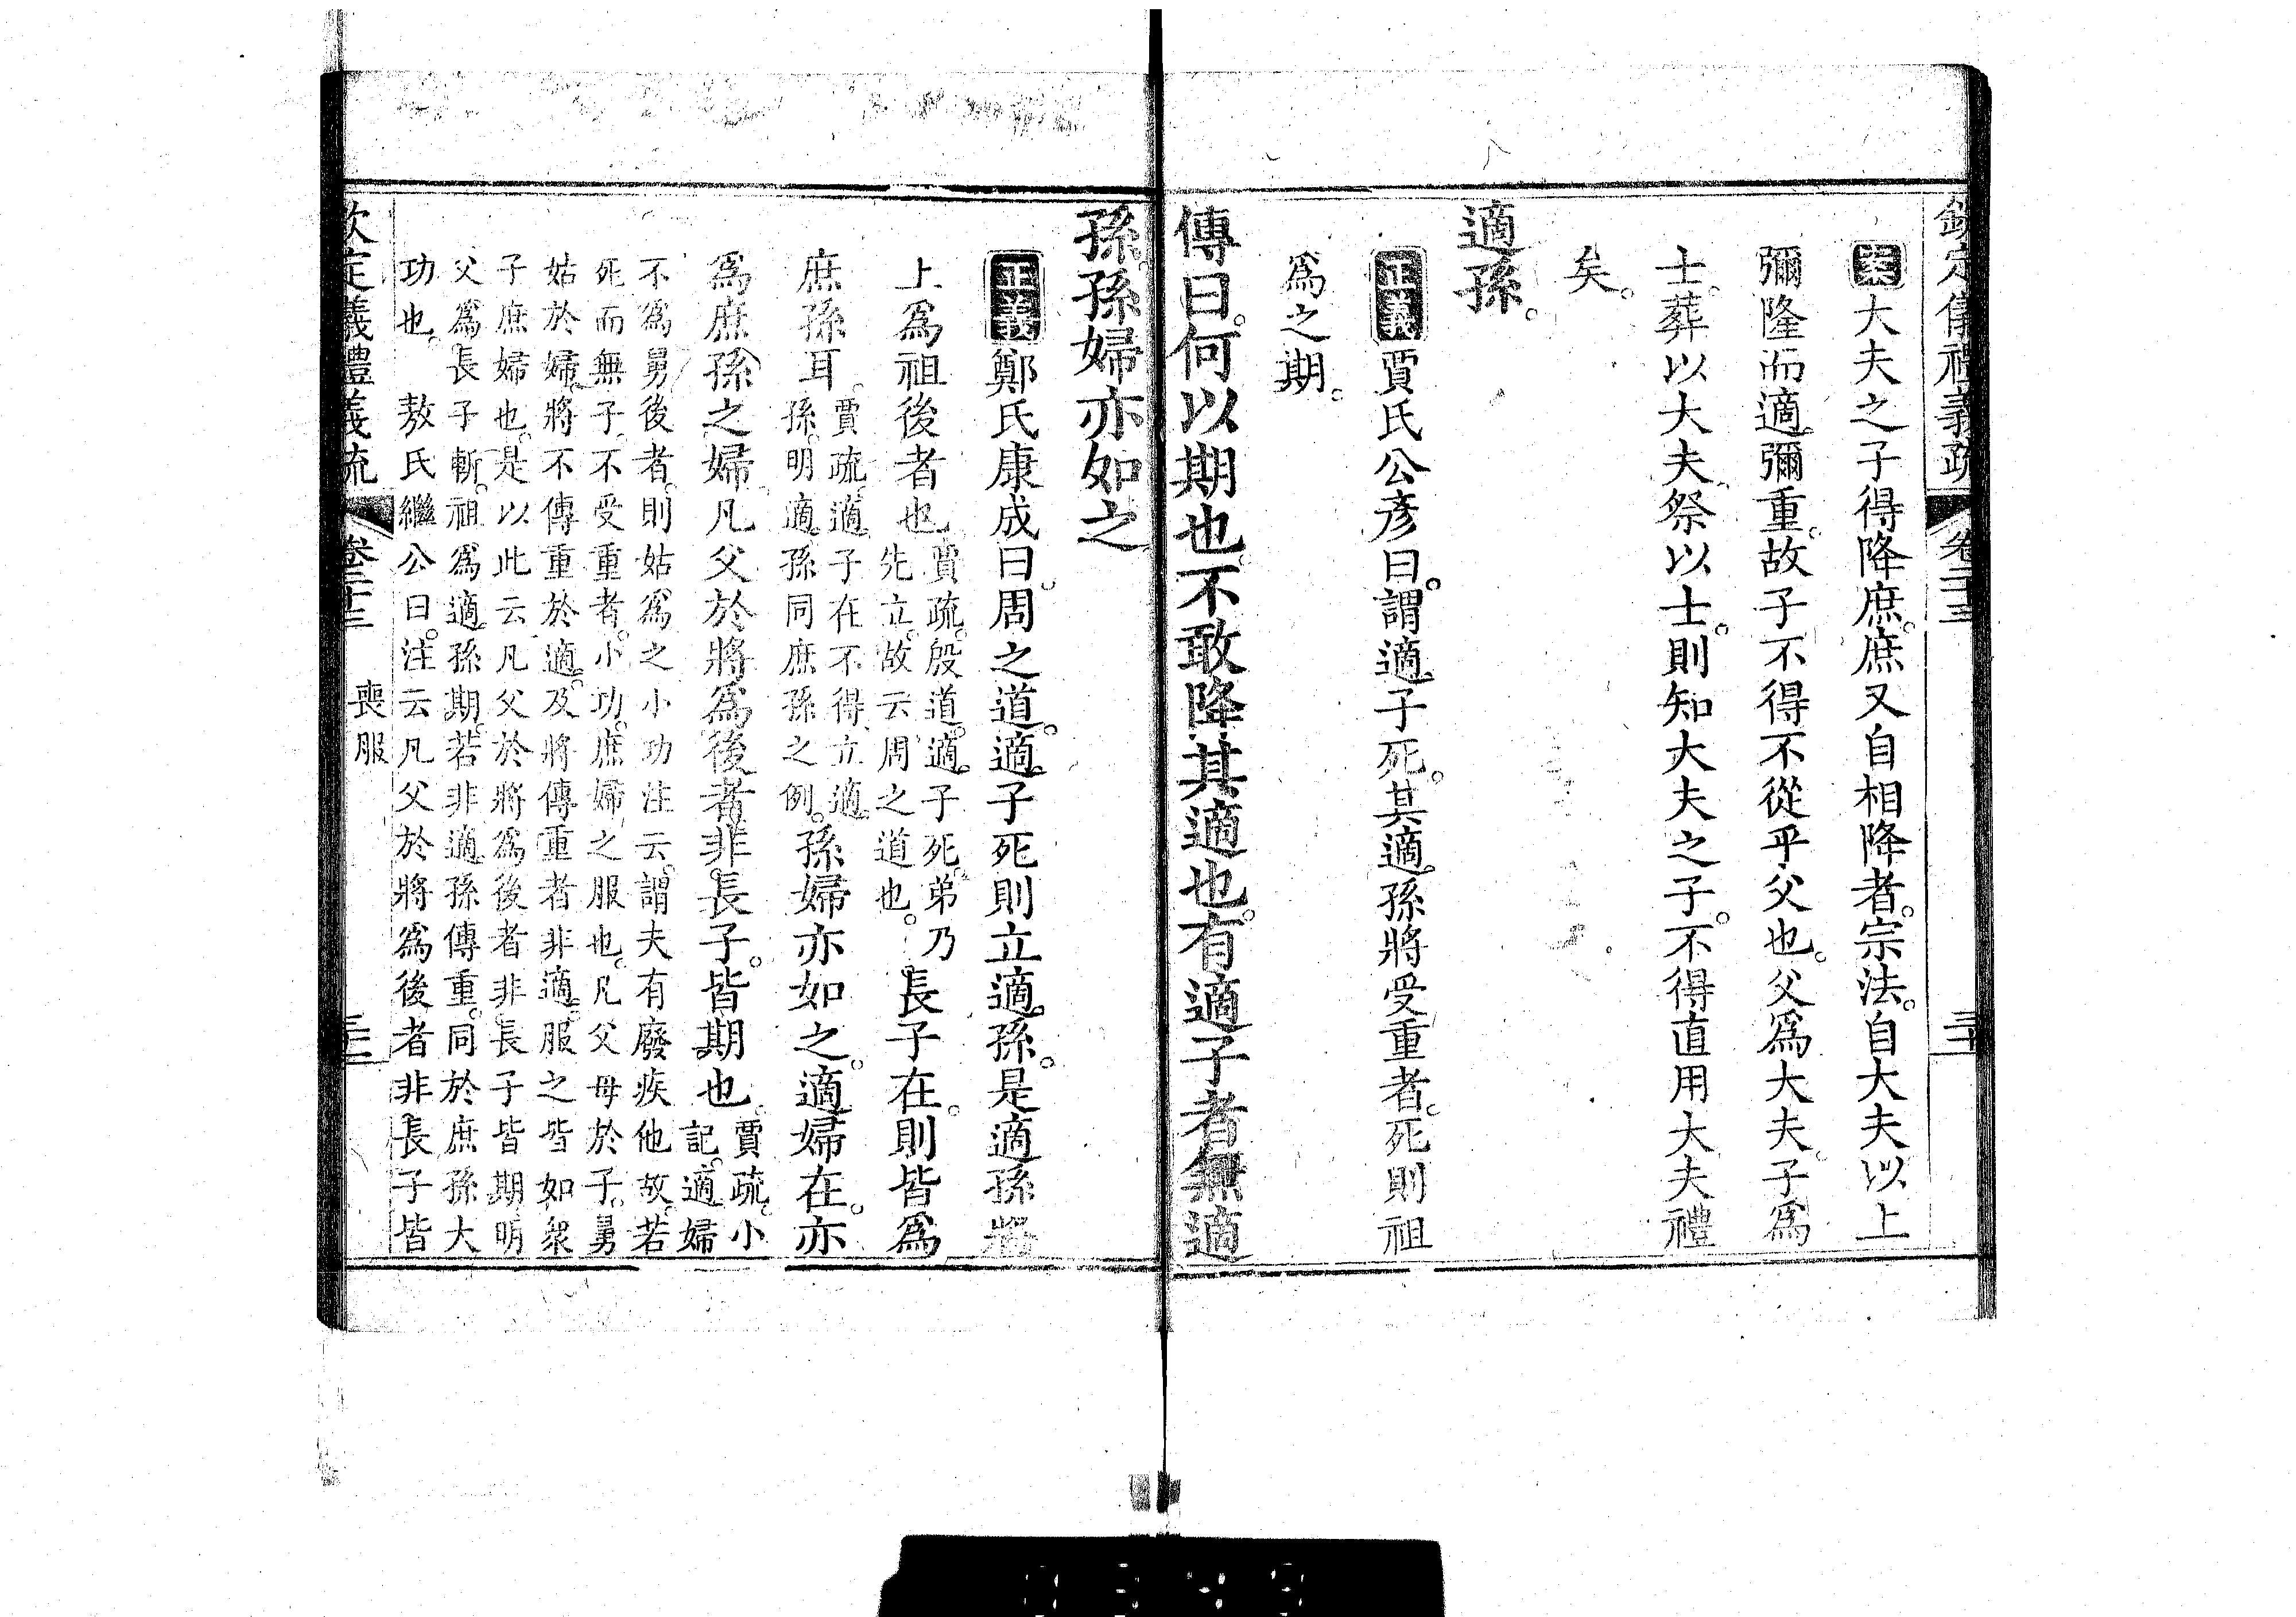 欽定儀禮義疏 卷二十三 三十二
案大夫之子得降庶。庶又自相降者。宗法。自大夫以上
彌隆而適彌重。故子不得不從乎父也。父爲大夫。子爲
士。葬以大夫。祭以士。則知大夫之子。不得直用大夫禮
矣。
適孫。
正義賈氏公彥曰。謂適子死。其適孫將受重者。死則祖
爲之期。
傳曰。何以期也。不敢降其適也。有適子者無適
孫。孫婦亦如之
正義鄭氏康成曰。周之道。適子死則立適孫。是適孫將
上爲祖後者也。賈疏。殷道。適子死。弟乃
先立。故云周之道也。長子在。則皆爲
庶孫耳。賈疏。適子在不得立適
孫。明適孫同庶孫之例。孫婦亦如之。適婦在。亦
爲庶孫之婦。凡父於將爲後者。非長子。皆期也。賈疏。小
記。適婦
不爲舅後者。則姑爲之小功注云。謂夫有廢疾他故。若
死而無子。不受重者。小功。庶婦之服也。凡父母於子。舅
姑於婦。將不傳重於適。及將傳重者非適。服之皆如衆
子庶婦也。是以此云凡父於將爲後者非長子皆期明
父爲長子斬。祖爲適孫期。若非適孫傳重。同於庶孫大
功也。 敖氏繼公曰。注云凡父於將爲後者非長子皆
欽定儀禮義疏 卷二十三 喪服 三十二